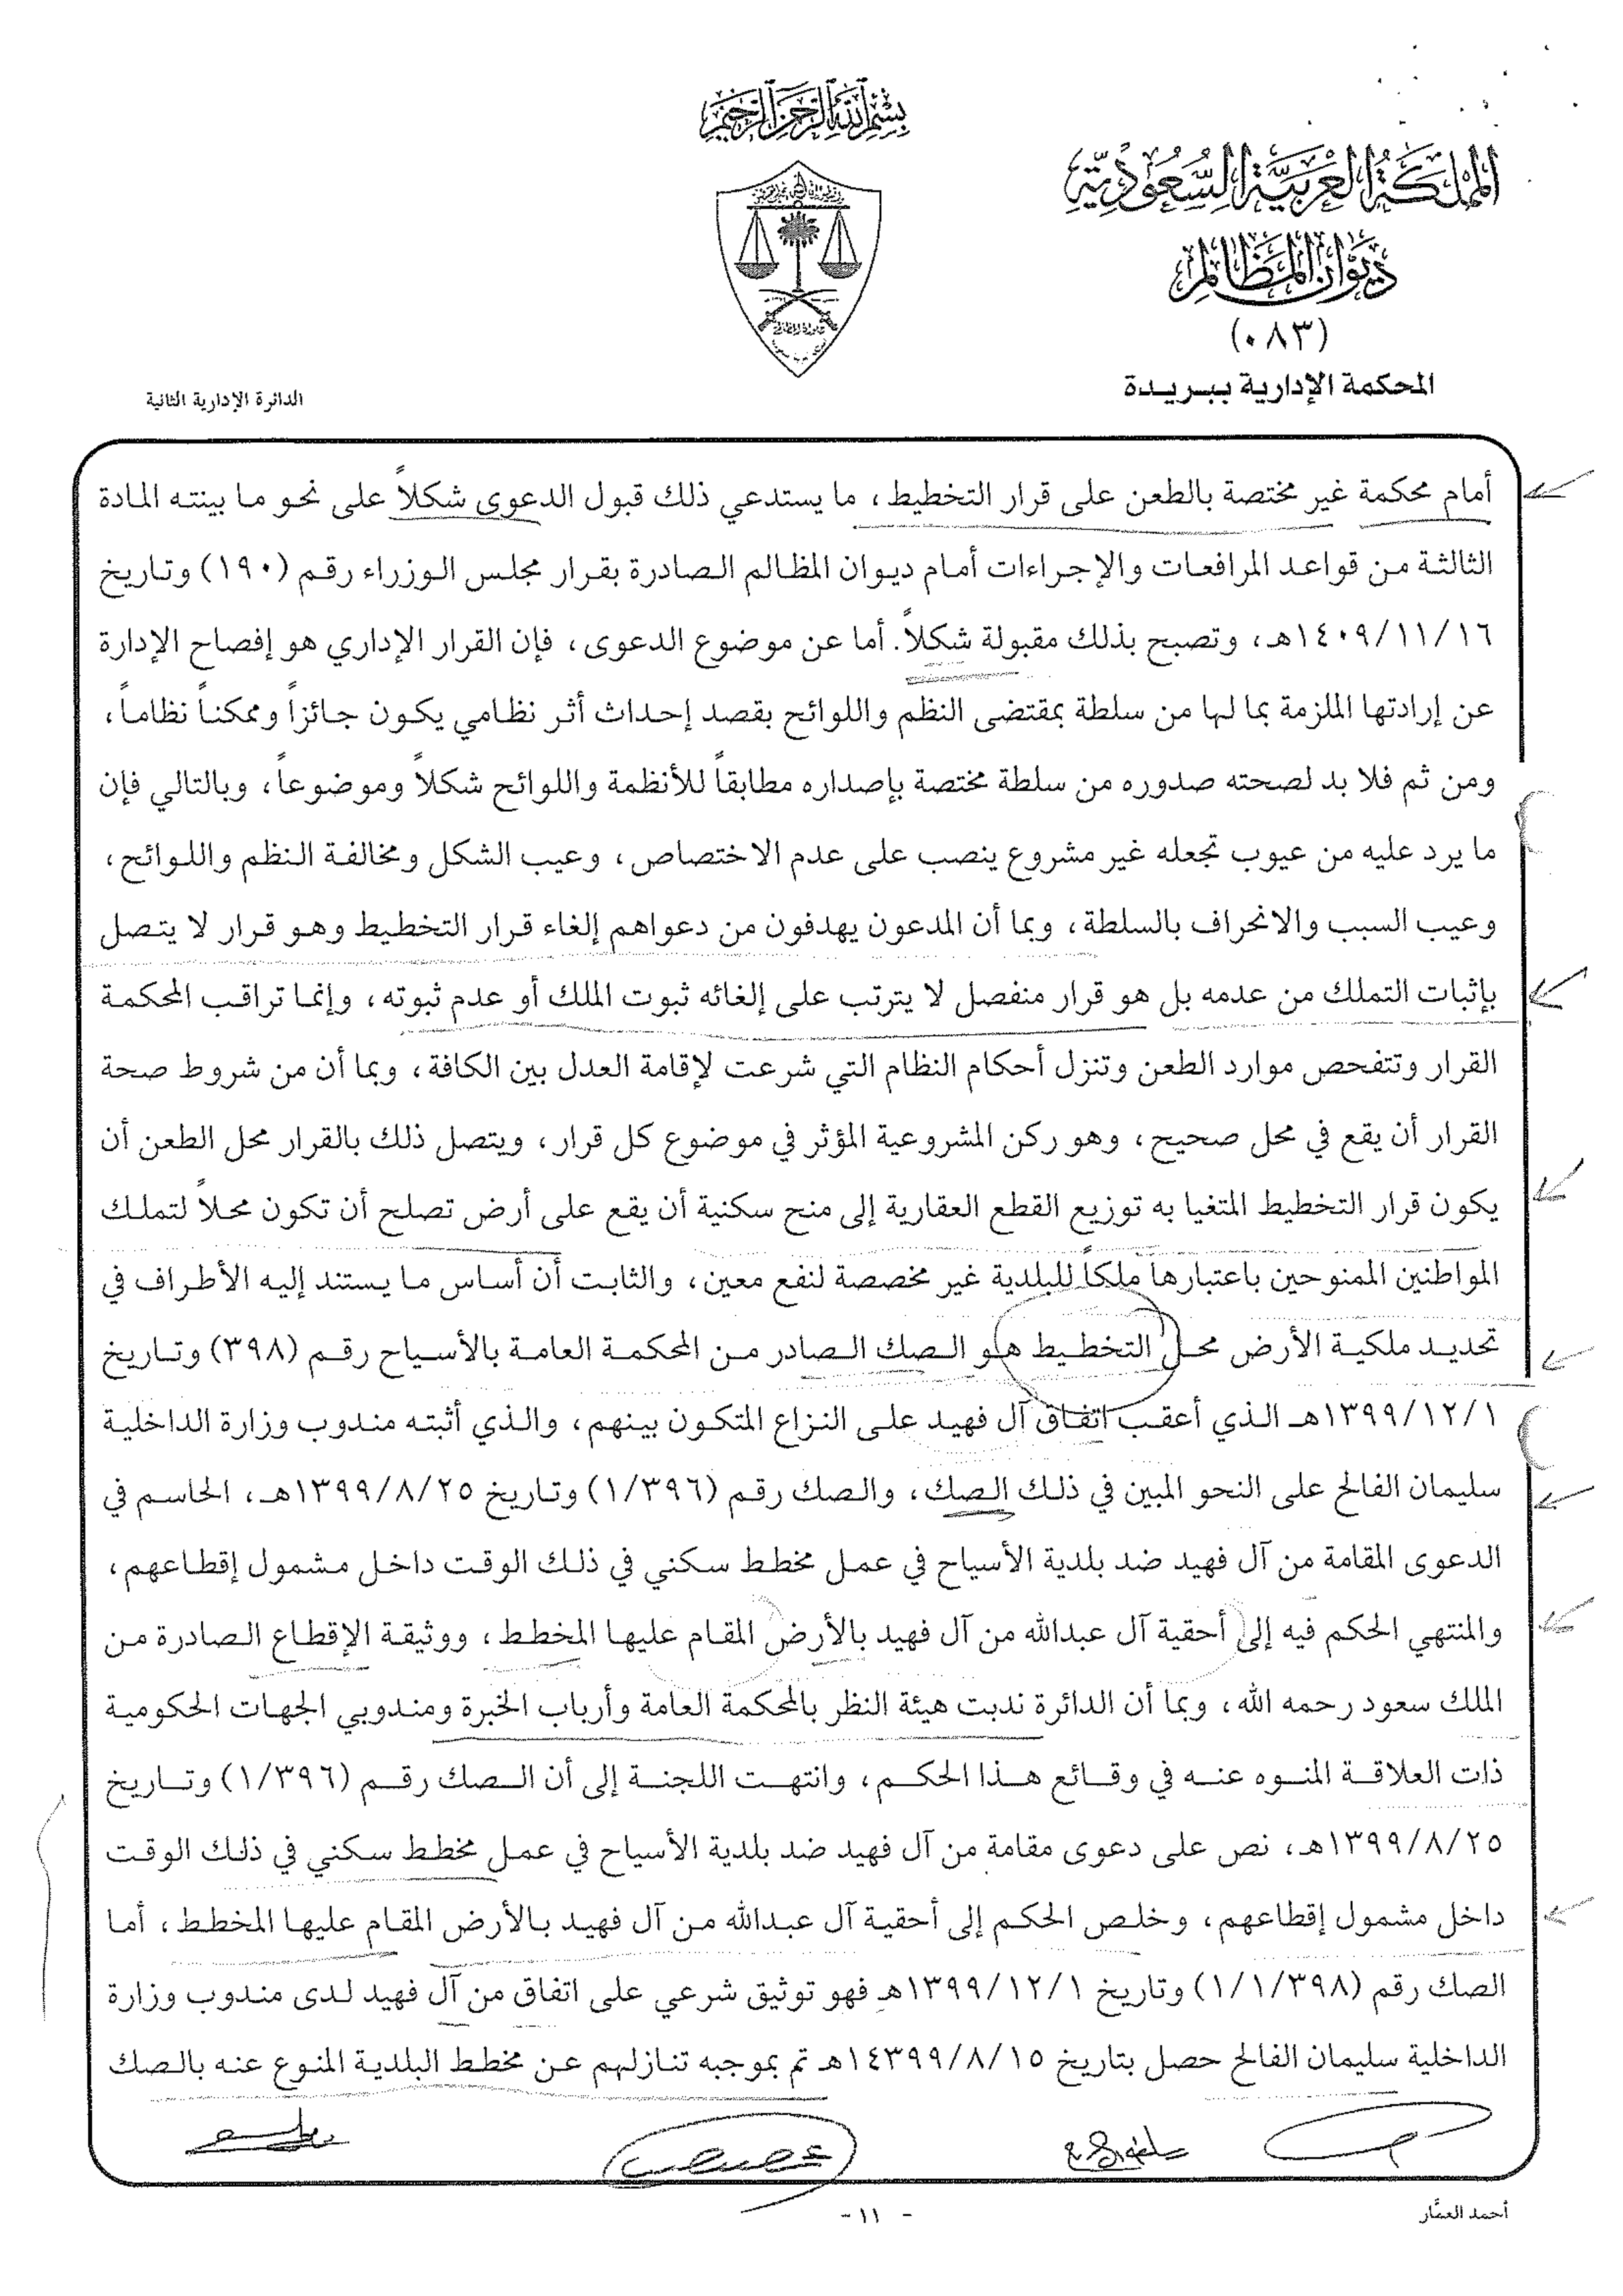 بسم الله الرحمن الرحيم
المملكة العربية السعودية
ديوان المظالم
(٠٨٣)
المحكمة الإدارية ببريدة
الدائرة الإدارية الثانية
أمام محكمة غير مختصة بالطعن على قرار التخطيط، ما يستدعي ذلك قبول الدعوى شكلاً على نحو ما بينته المادة
الثالثة من قواعد المرافعات والإجراءات أمام ديوان المظالم الصادرة بقرار مجلس الوزراء رقم (١٩٠) وتاريخ
١٤٠٩/١١/١٦هـ، وتصبح بذلك مقبولة شكلاً. أما عن موضوع الدعوى، فإن القرار الإداري هو إفصاح الإدارة
عن إرادتها الملزمة بما لها من سلطة بمقتضى النظم واللوائح بقصد إحداث أثر نظامي يكون جائزاً وممكناً نظاماً،
ومن ثم فلا بد لصحته صدوره من سلطة مختصة بإصداره مطابقاً للأنظمة واللوائح شكلاً وموضوعاً، وبالتالي فإن
ما يرد عليه من عيوب تجعله غير مشروع ينصب على عدم الاختصاص، وعيب الشكل ومخالفة النظم واللوائح،
وعيب السبب والانحراف بالسلطة، وبما أن المدعون يهدفون من دعواهم إلغاء قرار التخطيط وهو قرار لا يتصل
بإثبات التملك من عدمه بل هو قرار منفصل لا يترتب على إلغائه ثبوت الملك أو عدم ثبوته، وإنما تراقب المحكمة
القرار وتتفحص موارد الطعن وتنزل أحكام النظام التي شرعت لإقامة العدل بين الكافة، وبما أن من شروط صحة
القرار أن يقع في محل صحيح، وهو ركن المشروعية المؤثر في موضوع كل قرار، ويتصل ذلك بالقرار محل الطعن أن
يكون قرار التخطيط المتغيا به توزيع القطع العقارية إلى منح سكنية أن يقع على أرض تصلح أن تكون محلاً لتملك
المواطنين الممنوحين باعتبارها ملكاً للبلدية غير مخصصة لنفع معين، والثابت أن أساس ما يستند إليه الأطراف في
تحديد ملكية الأرض محل التخطيط هو الصك الصادر من المحكمة العامة بالأسياح رقم (٣٩٨) وتاريخ
١٣٩٩/١٢/١هـ الذي أعقب اتفاق آل فهيد على النزاع المتكون بينهم، والذي أثبته مندوب وزارة الداخلية
سليمان الفالح على النحو المبين في ذلك الصك، والصك رقم (١/٣٩٦) وتاريخ ١٣٩٩/٨/٢٥هـ، الحاسم في
الدعوى المقامة من آل فهيد ضد بلدية الأسياح في عمل مخطط سكني في ذلك الوقت داخل مشمول إقطاعهم،
والمنتهي الحكم فيه إلى أحقية آل عبدالله من آل فهيد بالأرض المقام عليها المخطط، ووثيقة الإقطاع الصادرة من
الملك سعود رحمه الله، وبما أن الدائرة ندبت هيئة النظر بالمحكمة العامة وأرباب الخبرة ومندوبي الجهات الحكومية
ذات العلاقة المنوه عنه في وقائع هذا الحكم، وانتهت اللجنة إلى أن الصك رقم (١/٣٩٦) وتاريخ
١٣٩٩/٨/٢٥هـ، نص على دعوى مقامة من آل فهيد ضد بلدية الأسياح في عمل مخطط سكني في ذلك الوقت
داخل مشمول إقطاعهم، وخلص الحكم إلى أحقية آل عبدالله من آل فهيد بالأرض المقام عليها المخطط، أما
الصك رقم (١/١/٣٩٨) وتاريخ ١٣٩٩/١٢/١هـ فهو توثيق شرعي على اتفاق من آل فهيد لدى مندوب وزارة
الداخلية سليمان الفالح حصل بتاريخ ١٤٣٩٩/٨/١٥هـ تم بموجبه تنازلهم عن مخطط البلدية المنوع عنه بالصك
- ١١ -
أحمد العمَّار